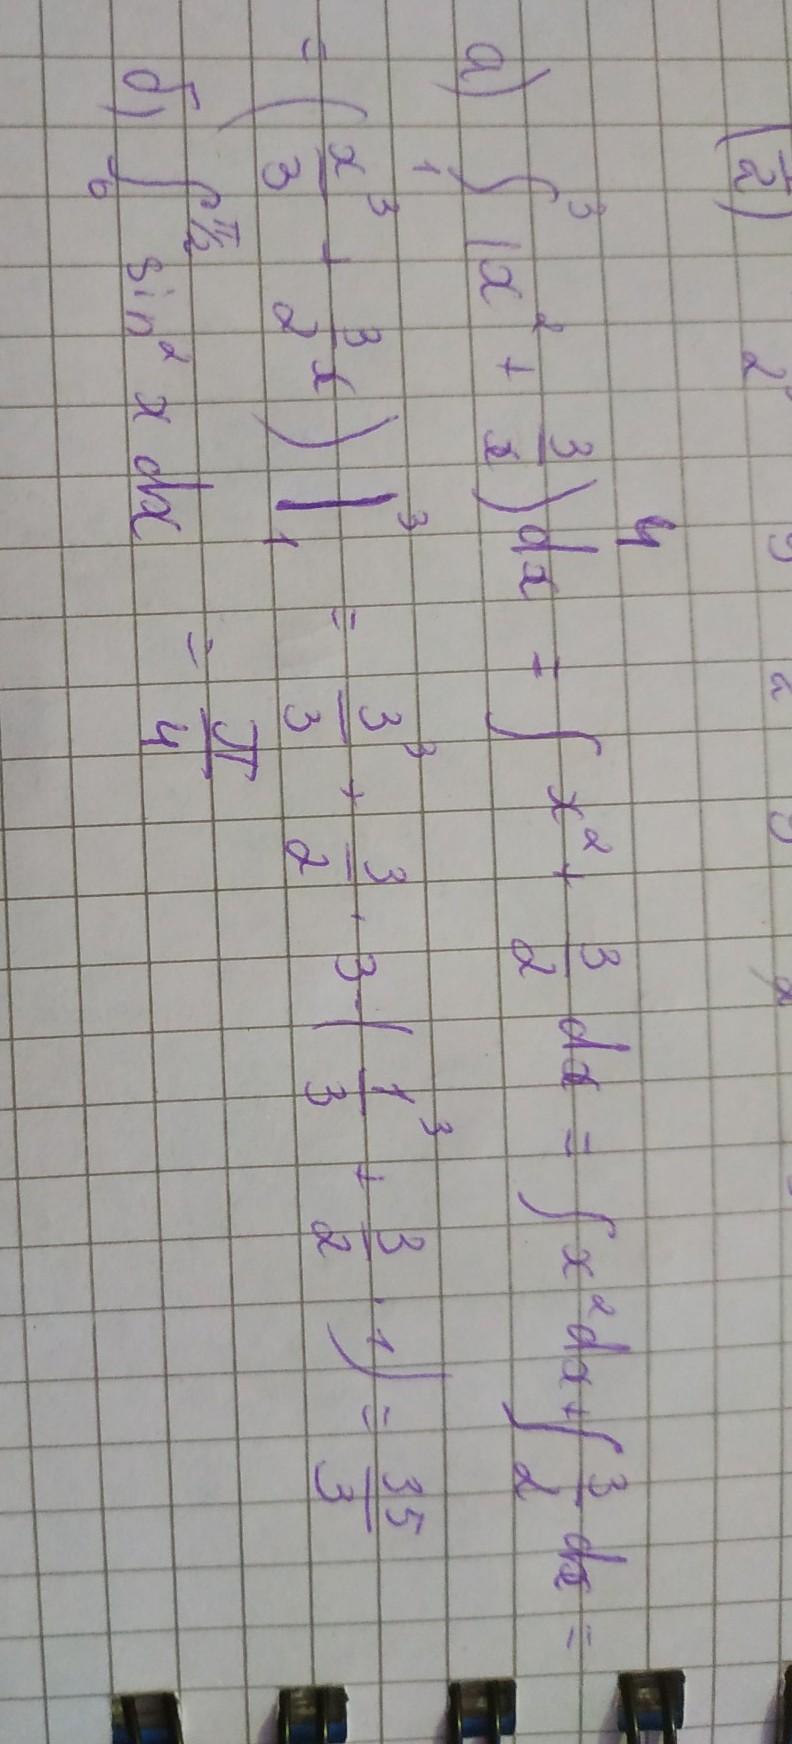 4
а) ∫₁³ (x² + 3/x) dx = ∫ x² + 3/2 dx = ∫ x² dx + ∫ 3/2 dx =
= (x³/3 + 3/2 x) |₁³ = 3³/3 + 3/2 · 3 - (1³/3 + 3/2 · 1) = 35/3
б) ∫₀^π/2 sin² x dx = π/4